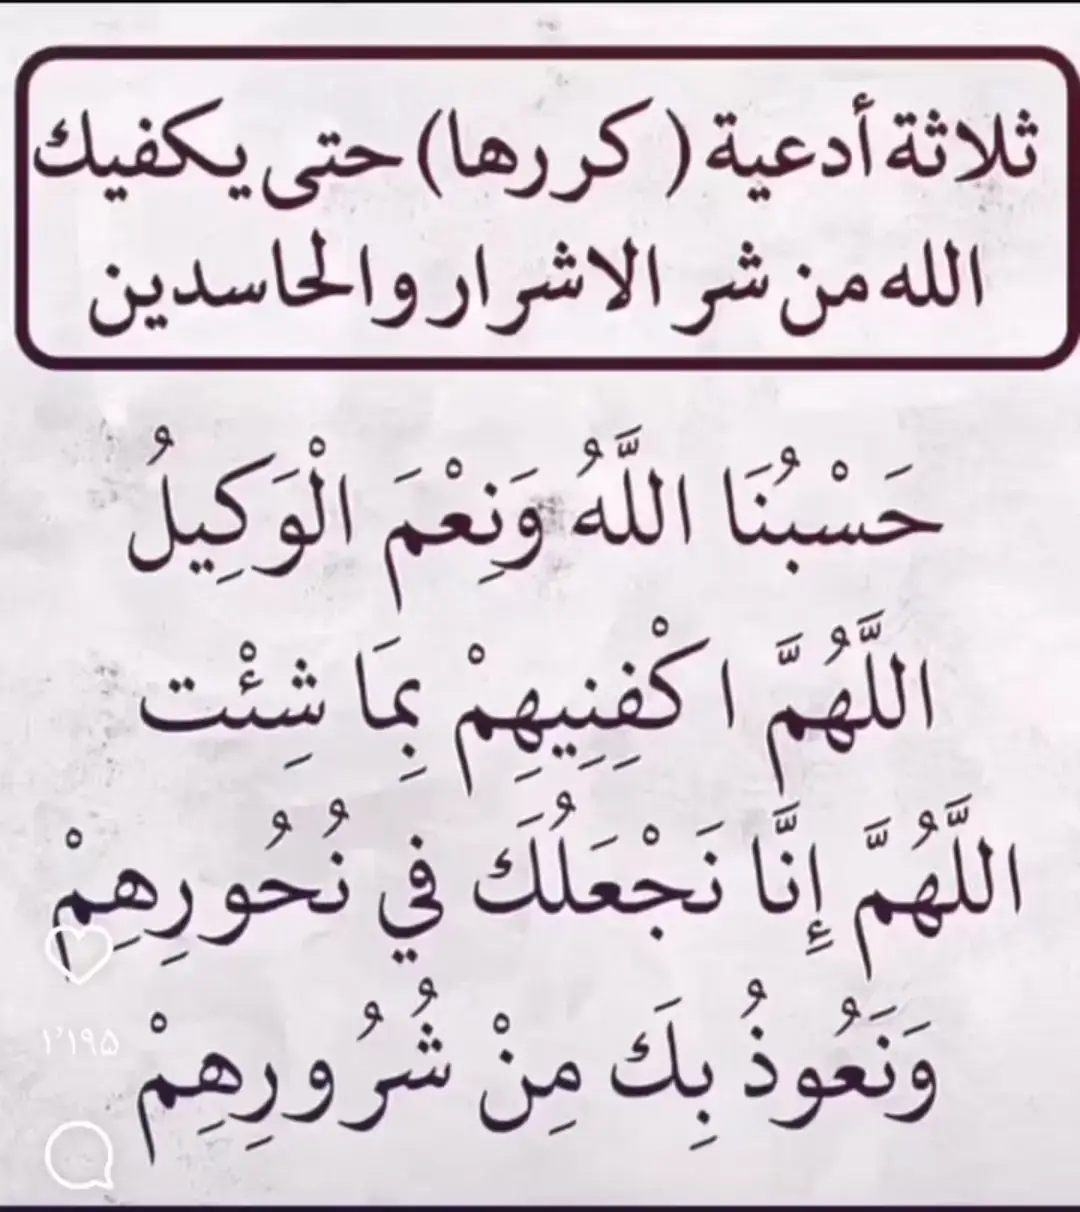 ثلاثة أدعية ( كررها) حتى يكفيك
الله من شر الاشرار والحاسدين
حَسْبُنَا اللَّهُ وَنِعْمَ الْوَكِيلُ
اللَّهُمَّ اكْفِنِيهِمْ بِمَا شِئْت
اللَّهُمَّ إِنَّا نَجْعَلُكَ فِي نُحُورِهِمْ
وَنَعُوذُ بِكَ مِنْ شُرُورِهِمْ
۲٬۱۹۵